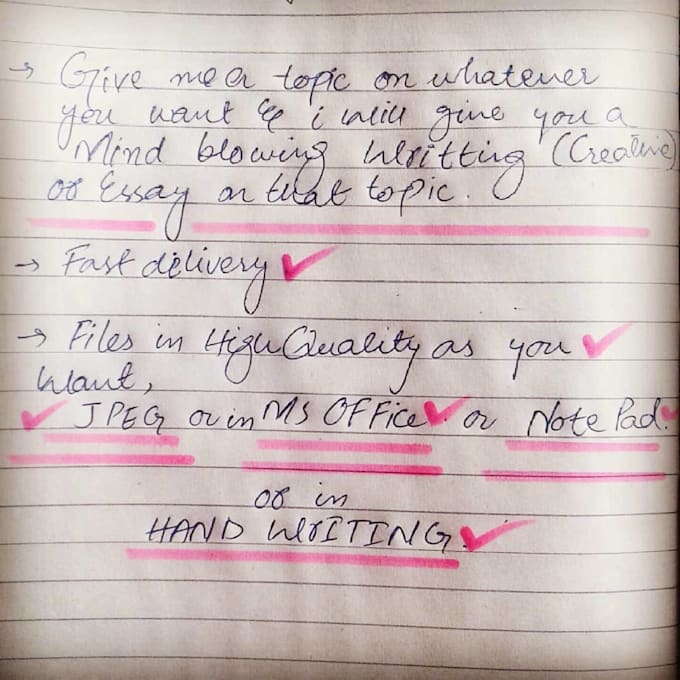 → Give me a topic on whatever
you want & i will give you a
Mind blowing Writting (Creative)
or Essay on that topic.
→ Fast delivery ✔
→ Files in High Quality as you ✔
want,
✔ JPEG or in MS OFFice ✔. or Note Pad. ✔
or in
HAND WrITING. ✔